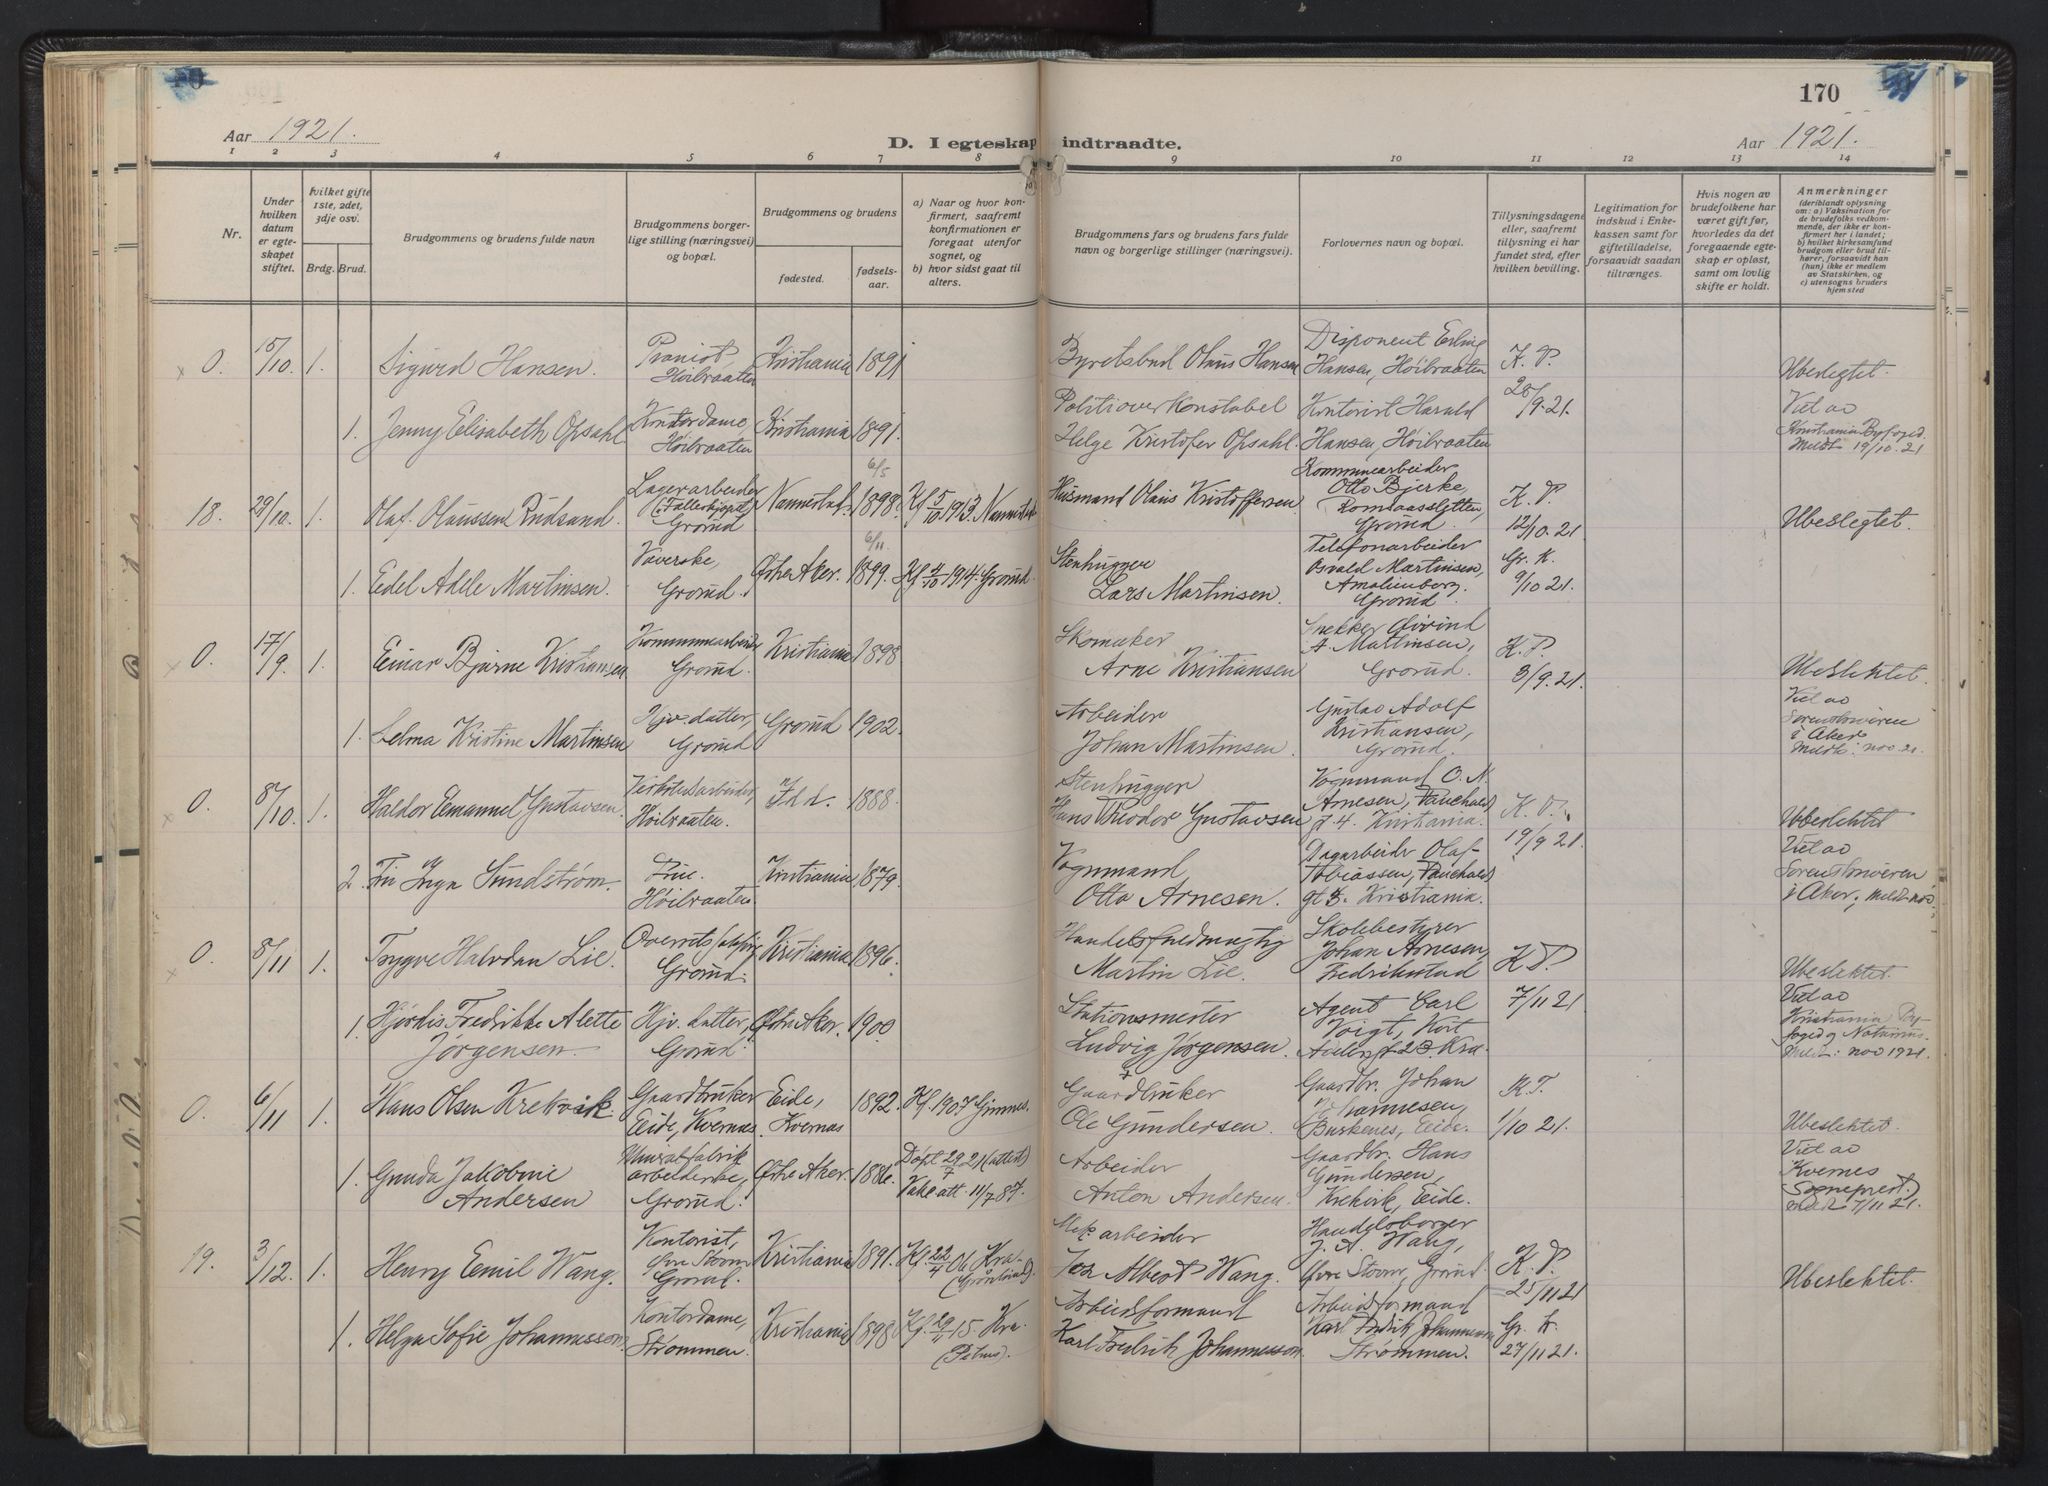 170
Aar 1921.
D. I egteskap indtraadte.
Aar 1921.
1 2 3 4 5 6 7 8 9 10 11 12 13 14
Nr.
Under hvilken datum er egteskapet stiftet.
hvilket gifte 1ste, 2det, 3dje osv.
Brdg. Brud.
Brudgommens og brudens fulde navn
Brudgommens borgerlige stilling (næringsvei) og bopæl.
Brudgommens og brudens
fødested.
fødselsaar.
a) Naar og hvor konfirmert, saafremt konfirmationen er foregaat utenfor sognet, og
b) hvor sidst gaat til alters.
Brudgommens fars og brudens fars fulde navn og borgerlige stillinger (næringsvei).
Forlovernes navn og bopæl.
Tillysningsdagene eller, saafremt tillysning ei har fundet sted, efter hvilken bevilling.
Legitimation for indskud i Enkekassen samt for giftetilladelse, forsaavidt saadan tiltrænges.
Hvis nogen av brudefolkene har været gift før, hvorledes da det foregaaende egteskap er opløst, samt om lovlig skifte er holdt.
Anmerkninger (deriblandt oplysning om: a) Vaksination for de brudefolks vedkommende, der ikke er konfirmert her i landet; b) hvilket kirkesamfund brudgom eller brud tilhører, forsaavidt han (hun) ikke er medlem av Statskirken, og c) utensogns bruders hjemsted
0. 15/10. 1. Sigurd Hansen. Pianist, Høibraaten Kristiania 1891 Byretsbud Olaus Hansen Disponent Erling Hansen, Høibraaten K. P. 28/9.21. Ubeslegtet.
1. Jenny Elisabeth Opsahl Kontordame, Høibraaten Kristiania 1891. Politioverkonstabel Helge Kristofer Opsahl. Kontorist Harald Hansen, Høibraaten Viet av Kristiania Byfoged. Meldt 19/10.21
18. 29/10. 1. Olaf Olaussen Rudsand. Lagerarbeider Grorud Nannestad. 6/5 1898. Kf 5/10 1913. Husmand Olaus Kristoffersen Kommunearbeider Otto Bjerke, Romsaasletten, Grorud. K. P. 12/10.21. Ubeslegtet.
1. Edel Adele Martinsen. Væverske, Grorud. Østre Aker. 6/11 1899. Kf 4/10 1914. Grorud. Stenhugger Lars Martinsen. Telefonarbeider Osvald Martinsen, Amalienborg. Grorud. Gr. K. 9/10 21.
0. 17/9. 1. Einar Bjarne Kristiansen Kommunearbeider Grorud. Kristiania 1898 Skomaker Arne Kristiansen Snekker Øivind A. Martinsen, Grorud. K. P. 3/9.21. Ubeslektet.
1. Selma Kristine Martinsen Hjv. datter, Grorud Grorud 1902. Arbeider Johan Martinsen. Gustav Adolf Kristiansen, Grorud. Viet av Sorenskriveren i Aker Meldt: nov. 21.
0. 8/10. 1. Haldor Emanuel Gustavsen Verkstedarbeider, Høibraaten. Idd. 1888. Stenhugger Hans Theodor Gustavsen Vognmand O. N. Arnesen, gt 4. Kristiania. K. P. 19/9 21. Ubeslektet
2. Fru Inga Sundstrøm. Frue. Høibraaten. Kristiania 1879. Vognmand, Otto Arnesen. Dagarbeider Olaf Tobiassen, gt 3. Kristiania. Viet av Sorenskriveren i Aker;
0. 8/11 1. Trygve Halvdan Lie. Grorud. Kristiania 1896. Handelsfuldmægtig Martin Lie. Skolebestyrer Johan Arnesen, Fredrikstad K P. 7/11 21 Ubeslektet.
1. Hjørdis Fredrikke Alette Jørgensen. Hjv. datter, Grorud. Østre Aker. 1900 Stationsmester Ludvig Jørgensen. Agent Carl Voigt, Kort Adelersgt 23 Kra. Viet av Kristiania Byfoged og Notarius. Meldt: nov 1921.
0. 6/11 1. Hans Olsen Krekvik. Gaardbruker Eide, Kvernæs. Eide, Kvernæs 1892. Kf. 1907 Gimnes. Gaardbruker Ole Gundersen. Gaardbr. Johan Johannesen, Eide. K. P. 1/10 21. Ubeslektet.
1. Gunda Jakobine Andersen Grorud. Østre Aker. 1886. Døpt 29/7 21 (attest) Vakc. att. 11/7 87. Arbeider Anton Andersen. Gaardbr. Hans Gundersen, Krekvik, Eide. Viet av Kvernes Sogneprest. Meldt 7/11 21.
19. 3/12. 1. Henry Emil Wang. Kontorist, Øvre Stovner Grorud. Kristiania 1891. Kf. 22/4 06 Kra. (Grønland). Mek. arbeider Albert Wang. Handelsborger J. A. Wang, Øvre Stovner, Grorud. K. P. 25/11 21 Ubeslektet.
1. Helga Sofie Johannesson. Kontordame, Strømmen. Kristiania 1898 Kf. 29/11 15. Kra. (Petrus). Arbeidsformand Karl Fredrik Johannesson. Arbeidsformand Karl Fredrik Johannesson Strømmen. Gr. K. 27/11 21.